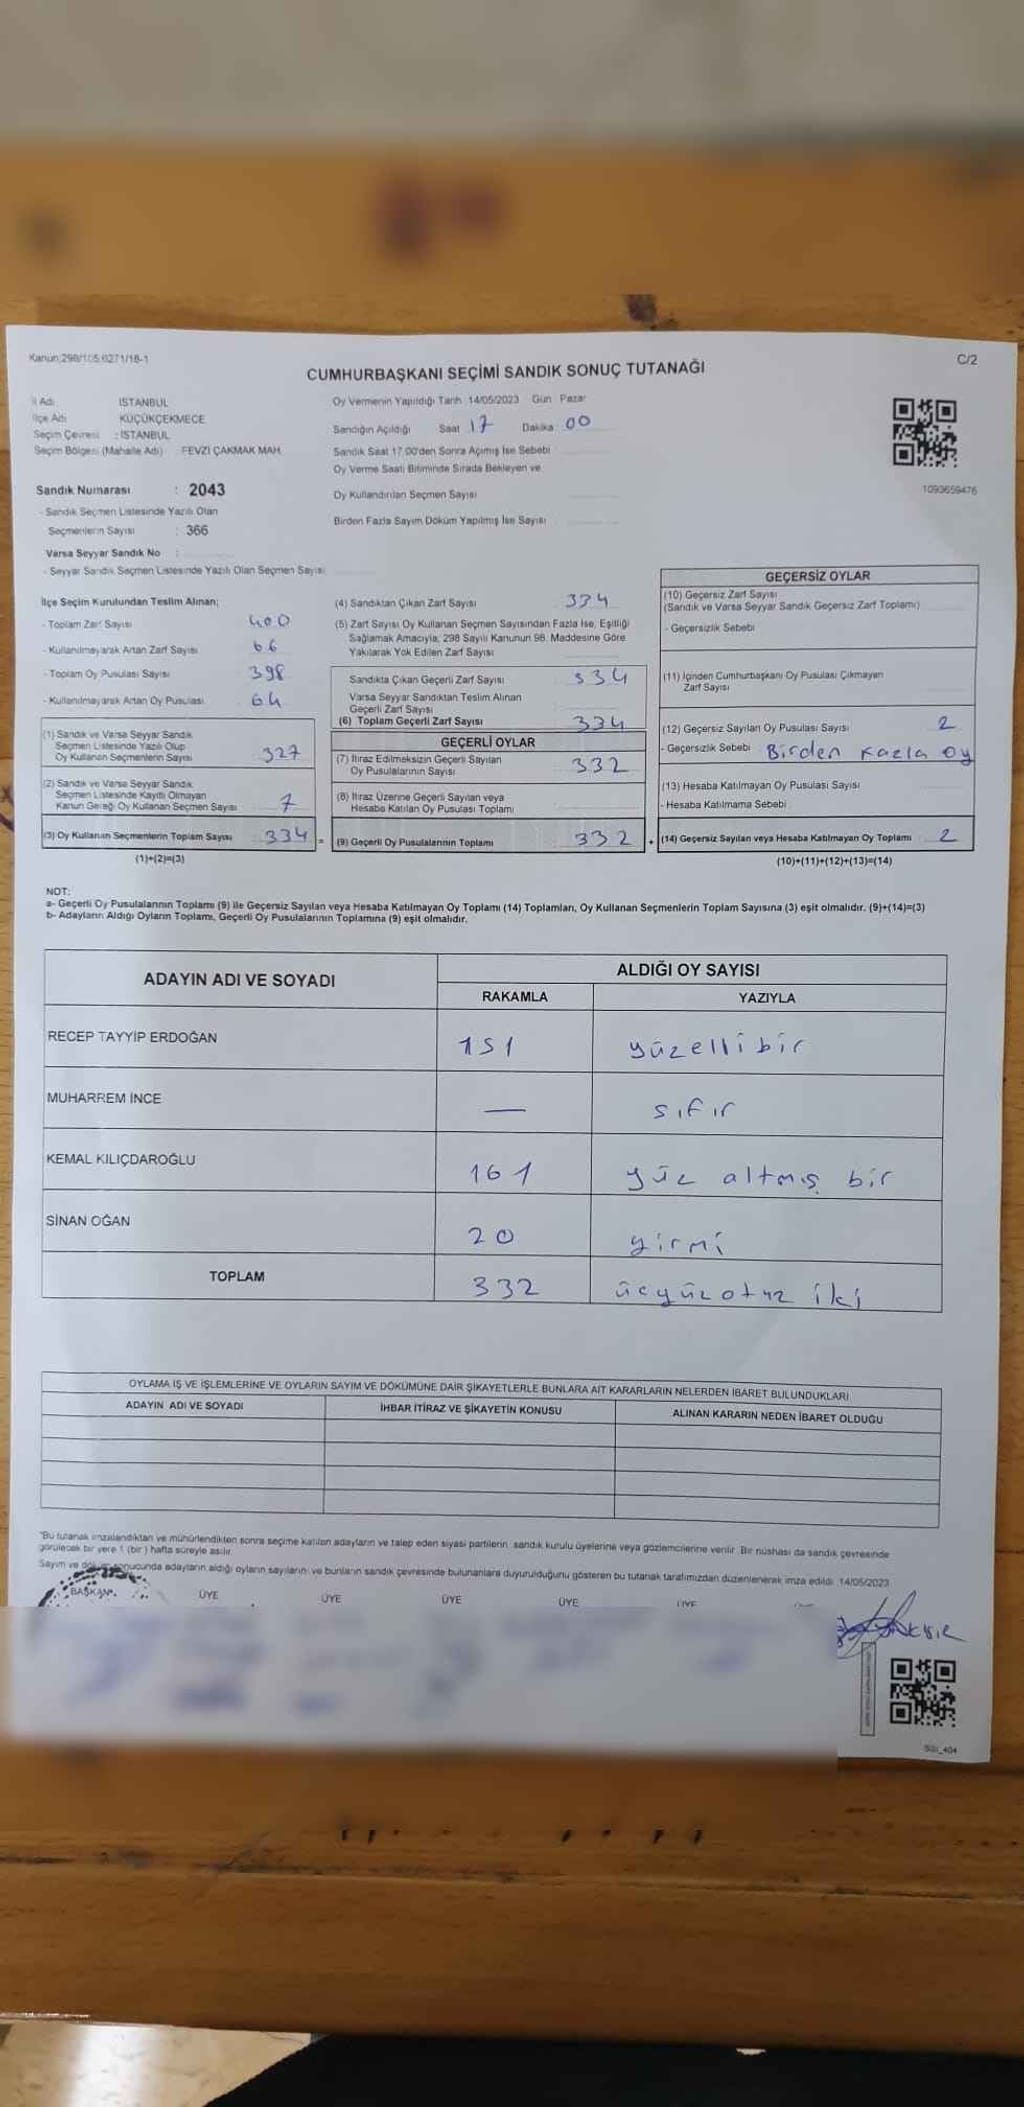 Kanun:298/105,6271/18-1
C/2
CUMHURBAŞKANI SEÇİMİ SANDIK SONUÇ TUTANAĞI
İl Adı İSTANBUL
İlçe Adı KÜÇÜKÇEKMECE
Seçim Çevresi : İSTANBUL
Seçim Bölgesi (Mahalle Adı) : FEVZİ ÇAKMAK MAH.
Sandık Numarası : 2043
- Sandık Seçmen Listesinde Yazılı Olan
Seçmenlerin Sayısı : 366
Varsa Seyyar Sandık No :
- Seyyar Sandık Seçmen Listesinde Yazılı Olan Seçmen Sayısı
Oy Vermenin Yapıldığı Tarih 14/05/2023 Gün Pazar
Sandığın Açıldığı Saat 17 Dakika 00
Sandık Saat 17.00'den Sonra Açılmış İse Sebebi
Oy Verme Saati Bitiminde Sırada Bekleyen ve
Oy Kullandırılan Seçmen Sayısı
Birden Fazla Sayım Döküm Yapılmış İse Sayısı
1093659476
İlçe Seçim Kurulundan Teslim Alınan;
- Toplam Zarf Sayısı 400
- Kullanılmayarak Artan Zarf Sayısı 66
- Toplam Oy Pusulası Sayısı 398
- Kullanılmayarak Artan Oy Pusulası 64
(1) Sandık ve Varsa Seyyar Sandık
Seçmen Listesinde Yazılı Olup
Oy Kullanan Seçmenlerin Sayısı 327
(2) Sandık ve Varsa Seyyar Sandık
Seçmen Listesinde Kayıtlı Olmayan
Kanun Gereği Oy Kullanan Seçmen Sayısı 7
(3) Oy Kullanan Seçmenlerin Toplam Sayısı 334 =
(1)+(2)=(3)
(4) Sandıktan Çıkan Zarf Sayısı 334
(5) Zarf Sayısı Oy Kullanan Seçmen Sayısından Fazla İse, Eşitliği
Sağlamak Amacıyla, 298 Sayılı Kanunun 98. Maddesine Göre
Yakılarak Yok Edilen Zarf Sayısı
Sandıkta Çıkan Geçerli Zarf Sayısı 334
Varsa Seyyar Sandıktan Teslim Alınan
Geçerli Zarf Sayısı
(6) Toplam Geçerli Zarf Sayısı 334
GEÇERLİ OYLAR
(7) İtiraz Edilmeksizin Geçerli Sayılan
Oy Pusulalarının Sayısı 332
(8) İtiraz Üzerine Geçerli Sayılan veya
Hesaba Katılan Oy Pusulası Toplamı
(9) Geçerli Oy Pusulalarının Toplamı 332 +
GEÇERSİZ OYLAR
(10) Geçersiz Zarf Sayısı
(Sandık ve Varsa Seyyar Sandık Geçersiz Zarf Toplamı)
- Geçersizlik Sebebi
(11) İçinden Cumhurbaşkanı Oy Pusulası Çıkmayan
Zarf Sayısı
(12) Geçersiz Sayılan Oy Pusulası Sayısı 2
- Geçersizlik Sebebi Birden Fazla oy
(13) Hesaba Katılmayan Oy Pusulası Sayısı
- Hesaba Katılmama Sebebi
(14) Geçersiz Sayılan veya Hesaba Katılmayan Oy Toplamı 2
(10)+(11)+(12)+(13)=(14)
NOT:
a- Geçerli Oy Pusulalarının Toplamı (9) ile Geçersiz Sayılan veya Hesaba Katılmayan Oy Toplamı (14) Toplamları, Oy Kullanan Seçmenlerin Toplam Sayısına (3) eşit olmalıdır. (9)+(14)=(3)
b- Adayların Aldığı Oyların Toplamı, Geçerli Oy Pusulalarının Toplamına (9) eşit olmalıdır.
ADAYIN ADI VE SOYADI
ALDIĞI OY SAYISI
RAKAMLA YAZIYLA
RECEP TAYYİP ERDOĞAN 151 yüzellibir
MUHARREM İNCE — sıfır
KEMAL KILIÇDAROĞLU 161 yüz altmış bir
SİNAN OĞAN 20 yirmi
TOPLAM 332 üçyüzotuz iki
OYLAMA İŞ VE İŞLEMLERİNE VE OYLARIN SAYIM VE DÖKÜMÜNE DAİR ŞİKAYETLERLE BUNLARA AİT KARARLARIN NELERDEN İBARET BULUNDUKLARI
ADAYIN ADI VE SOYADI İHBAR İTİRAZ VE ŞİKAYETİN KONUSU ALINAN KARARIN NEDEN İBARET OLDUĞU
"Bu tutanak imzalandıktan ve mühürlendikten sonra seçime katılan adayların ve talep eden siyasi partilerin, sandık kurulu üyelerine veya gözlemcilerine verilir. Bir nüshası da sandık çevresinde
görülecek bir yere 1 (bir) hafta süreyle asılır.
Sayım ve döküm sonucunda adayların aldığı oyların sayılarını ve bunların sandık çevresinde bulunanlara duyurulduğunu gösteren bu tutanak tarafımızdan düzenlenerek imza edildi. 14/05/2023
BAŞKAN ÜYE ÜYE ÜYE ÜYE ÜYE